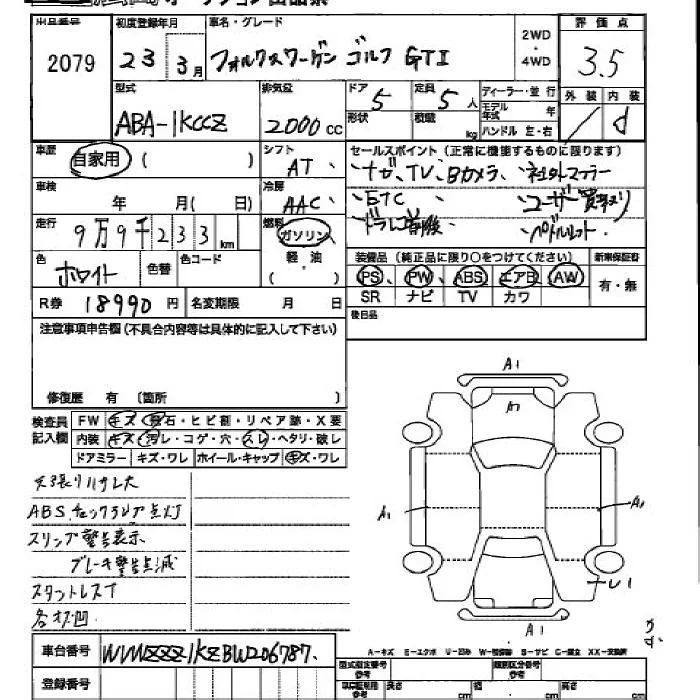 出品番号 初度登録年月 車名・グレード 2WD・4WD 評価点
2079 23年 3月 フォルクスワーゲン ゴルフ GTI 3.5
型式 排気量 ドア 5 定員 5人 ディーラー・並行 外装 内装
ABA-1KCCZ 2000cc 形状 積載 kg モデル年式 年 / d
ハンドル 左・右
車歴 自家用 ( ) シフト AT セールスポイント(正常に機能するものに限ります)
・ナビ、TV、Bカメラ、・社外マフラー
車検 年 月( 日) 冷房 AAC ・ETC ・ユーザー買取り
走行 9万9千233km 燃料 ガソリン ・ドラレコ前後 ・パドルシフト
軽・油
( )
色 ホワイト 色替 色コード 装備品(純正品に限り○をつけてください) 新車保証書
PS、PW、ABS、エアB、AW 有・無
R券 18990円 名変期限 月 日 SR ナビ TV カワ
注意事項申告欄(不具合内容等は具体的に記入して下さい) 後日品
修復歴 有 〔箇所 〕
検査員記入欄 FW キズ・飛石・ヒビ割・リペア跡・X要
内装 キズ・汚レ・コゲ・穴・スレ・ヘタリ・破レ
ドアミラー キズ・ワレ ホイール・キャップ キズ・ワレ
天張りハサレ大
ABS、チェックランプ点灯
スリップ警告表示
ブレーキ警告点滅
スタットレス下
各オス凹
A1
A1
A1
A1
A1
車台番号 WVWZZZ1KZBW206787
A-キズ E-エクボ U-凹み W-補修跡 S-サビ C-腐立 XX-交換済
登録番号 型式指定番号 参考 類別区分番号 参考
長さ cm 幅 cm 高さ cm